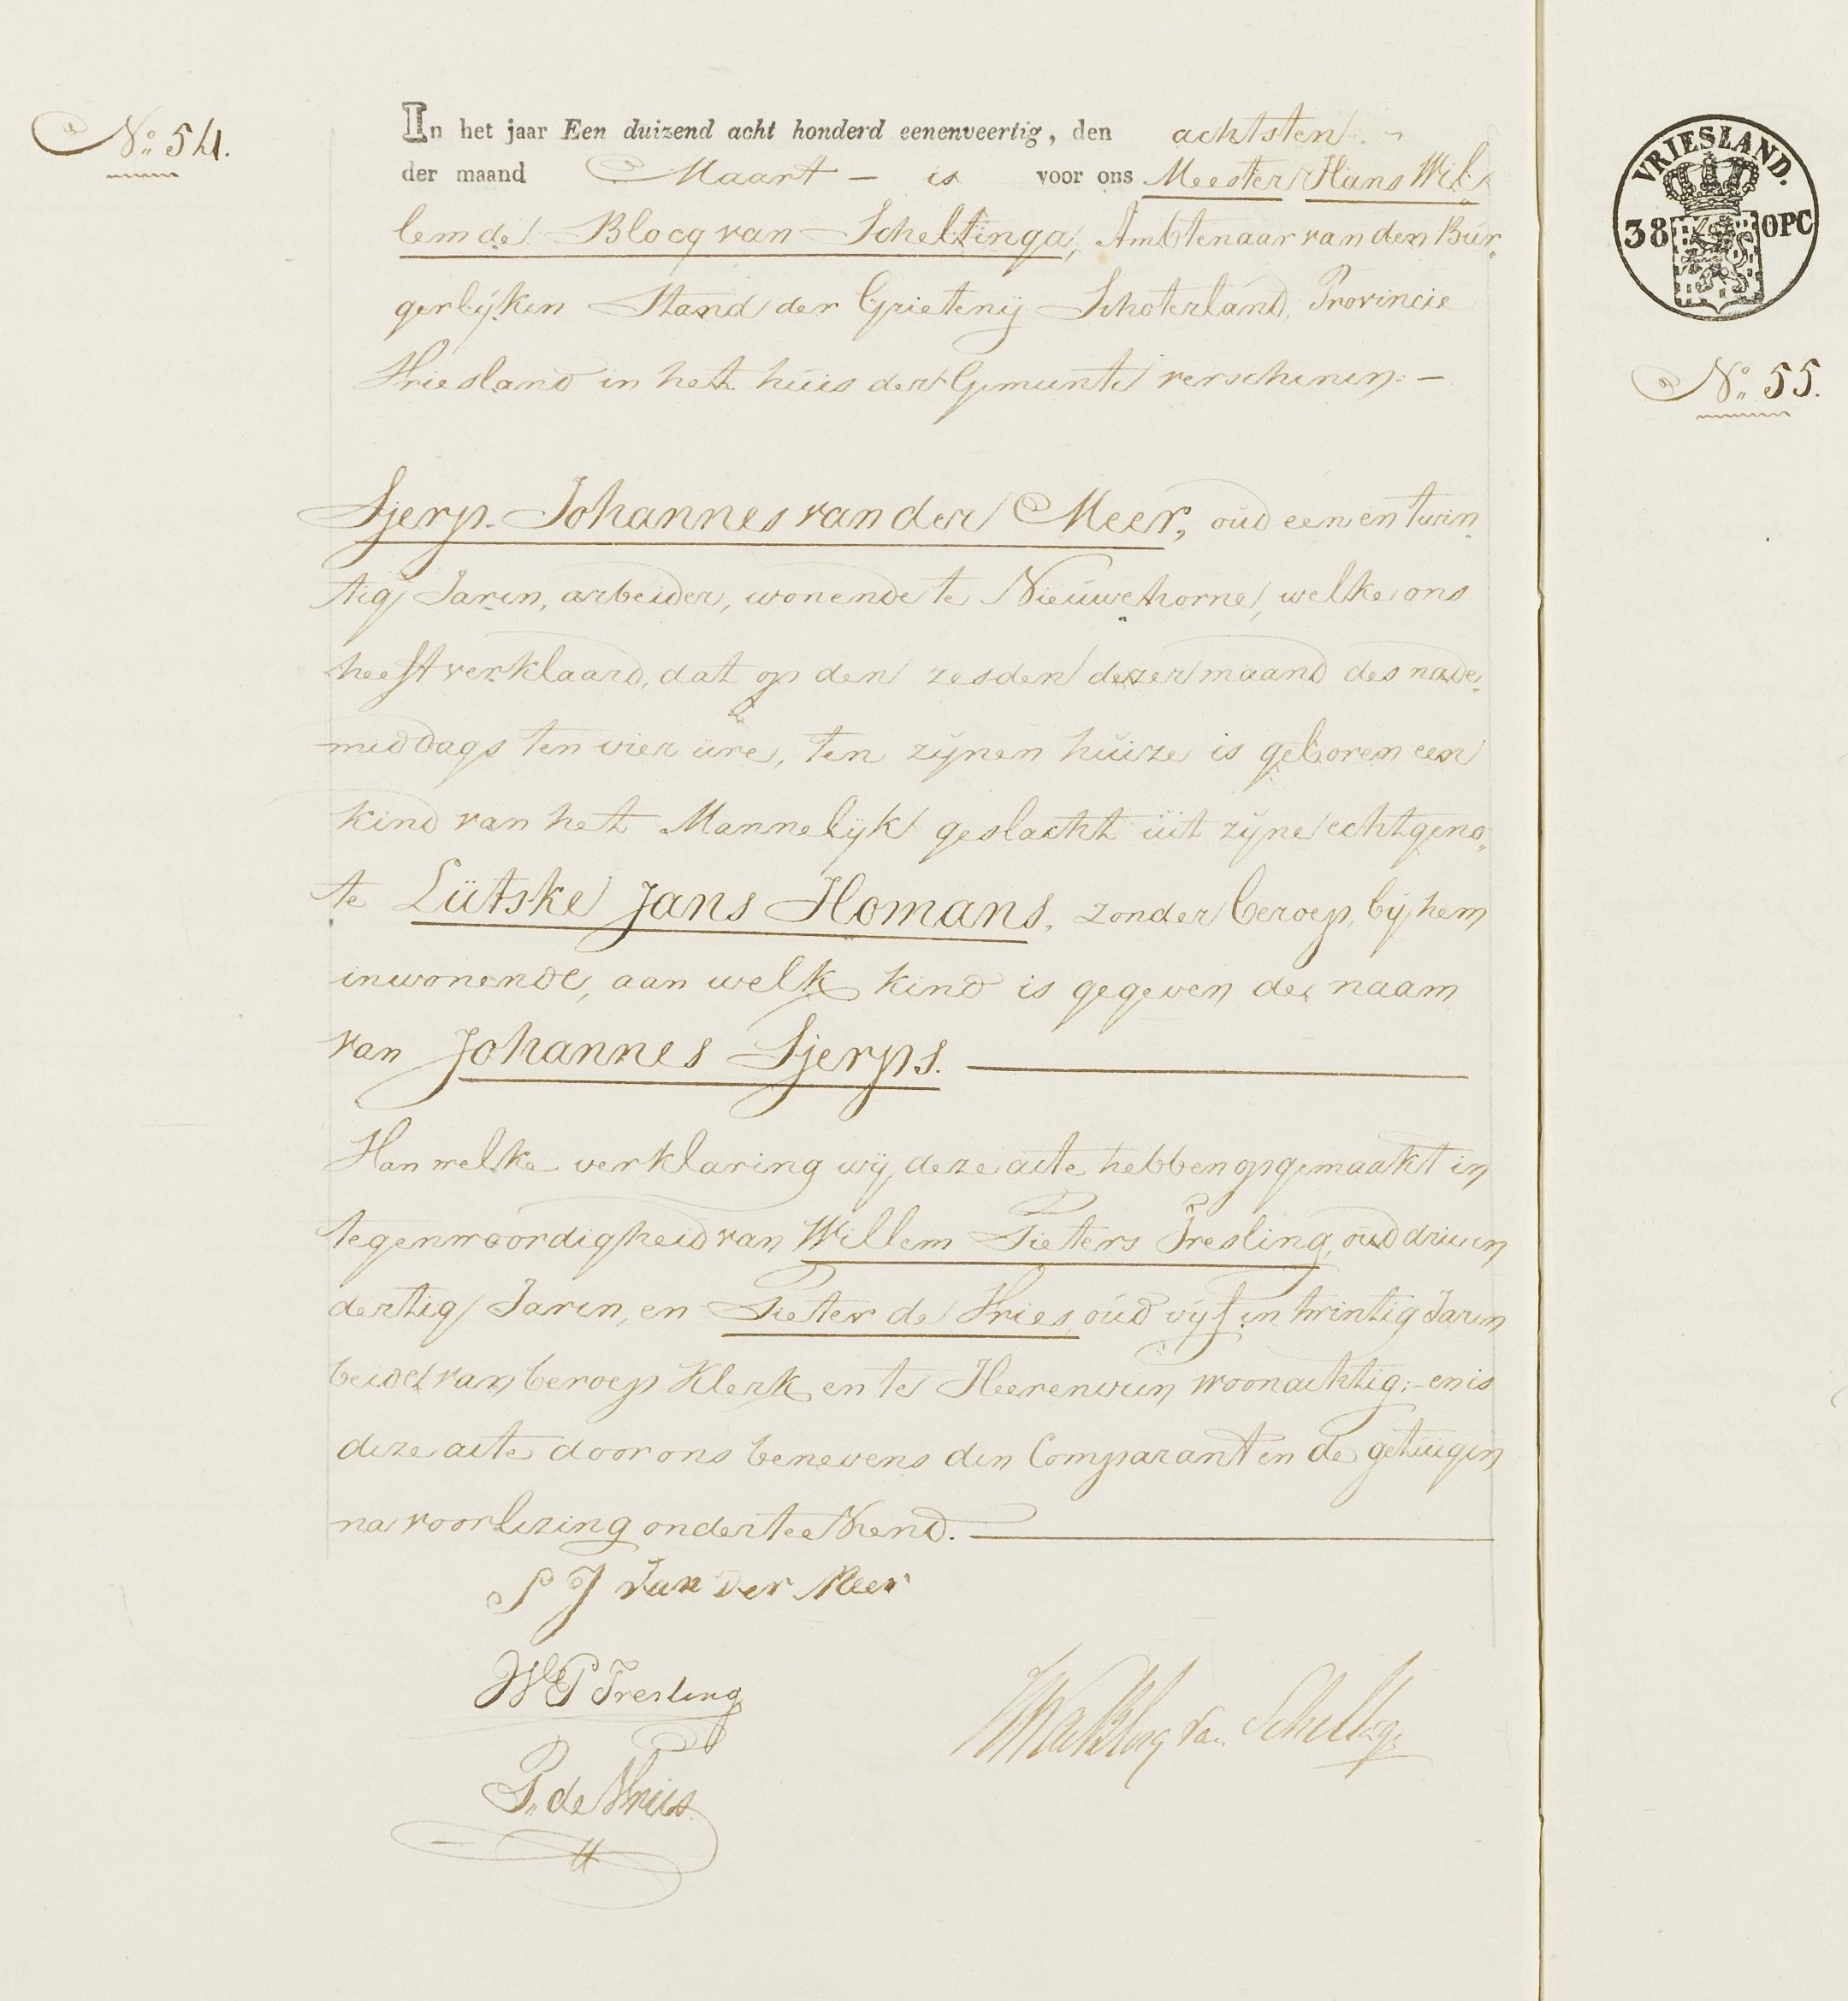 No 54.
In het jaar Een duizend acht honderd eenenveertig, den achtsten
der maand Maart – is voor ons Meester Hans Wil-
lem de Blocq van Scheltinga, Ambtenaar van den Bur-
gerlijken Stand der Grietenij Schoterland, Provincie
Vriesland in het huis der Gemeente verschenen: –
Sjerp Johannes van der Meer, oud een en twin-
tig Jaren, arbeider, wonende te Nieuwehorne, welke ons
heeft verklaard, dat op den zesden dezer maand des nade-
middags ten vier ure, ten zijnen huize is geboren een
kind van het Mannelijk geslacht uit zijne echtgeno-
te Lutske Jans Homans, zonder beroep, bij hem
inwonende, aan welk kind is gegeven de naam
van Johannes Sjerps.
Van welke verklaring wij deze acte hebben opgemaakt in
tegenwoordigheid van Willem Pieters Tresling, oud drieen
dertig Jaren, en Pieter de Vries, oud vijf en twintig Jaren
beide van beroep Klerk en te Heerenveen woonachtig: – en is
deze acte door ons benevens den Comparant en de getuigen
na voorlezing onderteekend.
S J van der Meer
W P Tresling
P. de Vries
HW de Blocq van Scheltinga
VRIESLAND.
38 OPC
No 55.